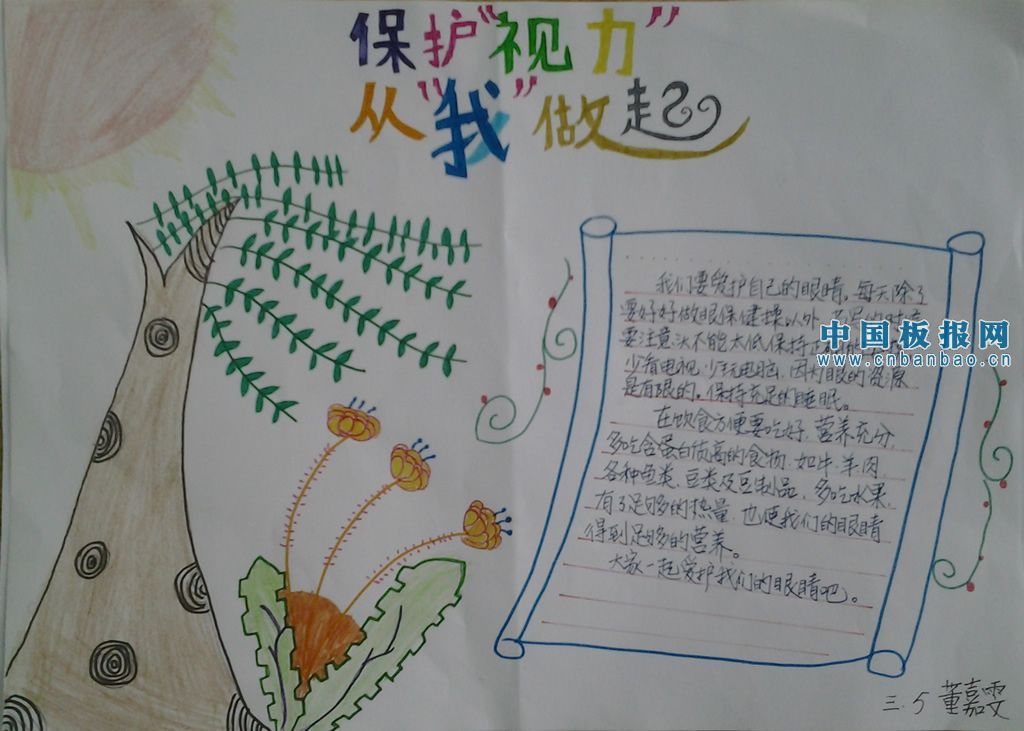 保护“视力”
从“我”做起
我们要爱护自己的眼睛。每天除了
要好好做眼保健操以外
要注意头不能太低保持
少看电视.少玩电脑.因为眼的资源
是有限的。保持充足的睡眠。
在饮食方便要吃好.营养充分.
多吃含蛋白质高的食物.如牛.羊.肉.
各种鱼类.豆类及豆制品.多吃水果.
有了足够多的热量.也使我们的眼睛
得到足够多的营养。
大家一起爱护我们的眼睛吧。
中国板报网
www.cnbanbao.cn
三.5 董嘉雯